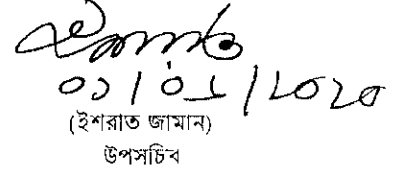 ০১/০১/২০২০
(ইশরাত জামান)
উপসচিব